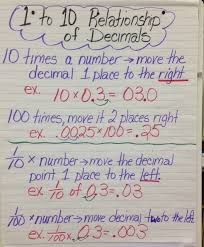 1 to 10 Relationship
of Decimals
10 times a number → move the
decimal 1 place to the right.
ex. 10 × 0.3 = 03.0
100 times, move it 2 places right
ex. .0025 × 100 = .25
1/10 × number → move the decimal
point 1 place to the left.
ex. 1/10 of 0.3 = .03
1/100 × number → move decimal two to the left
ex. 1/100 × 0.3 = .003